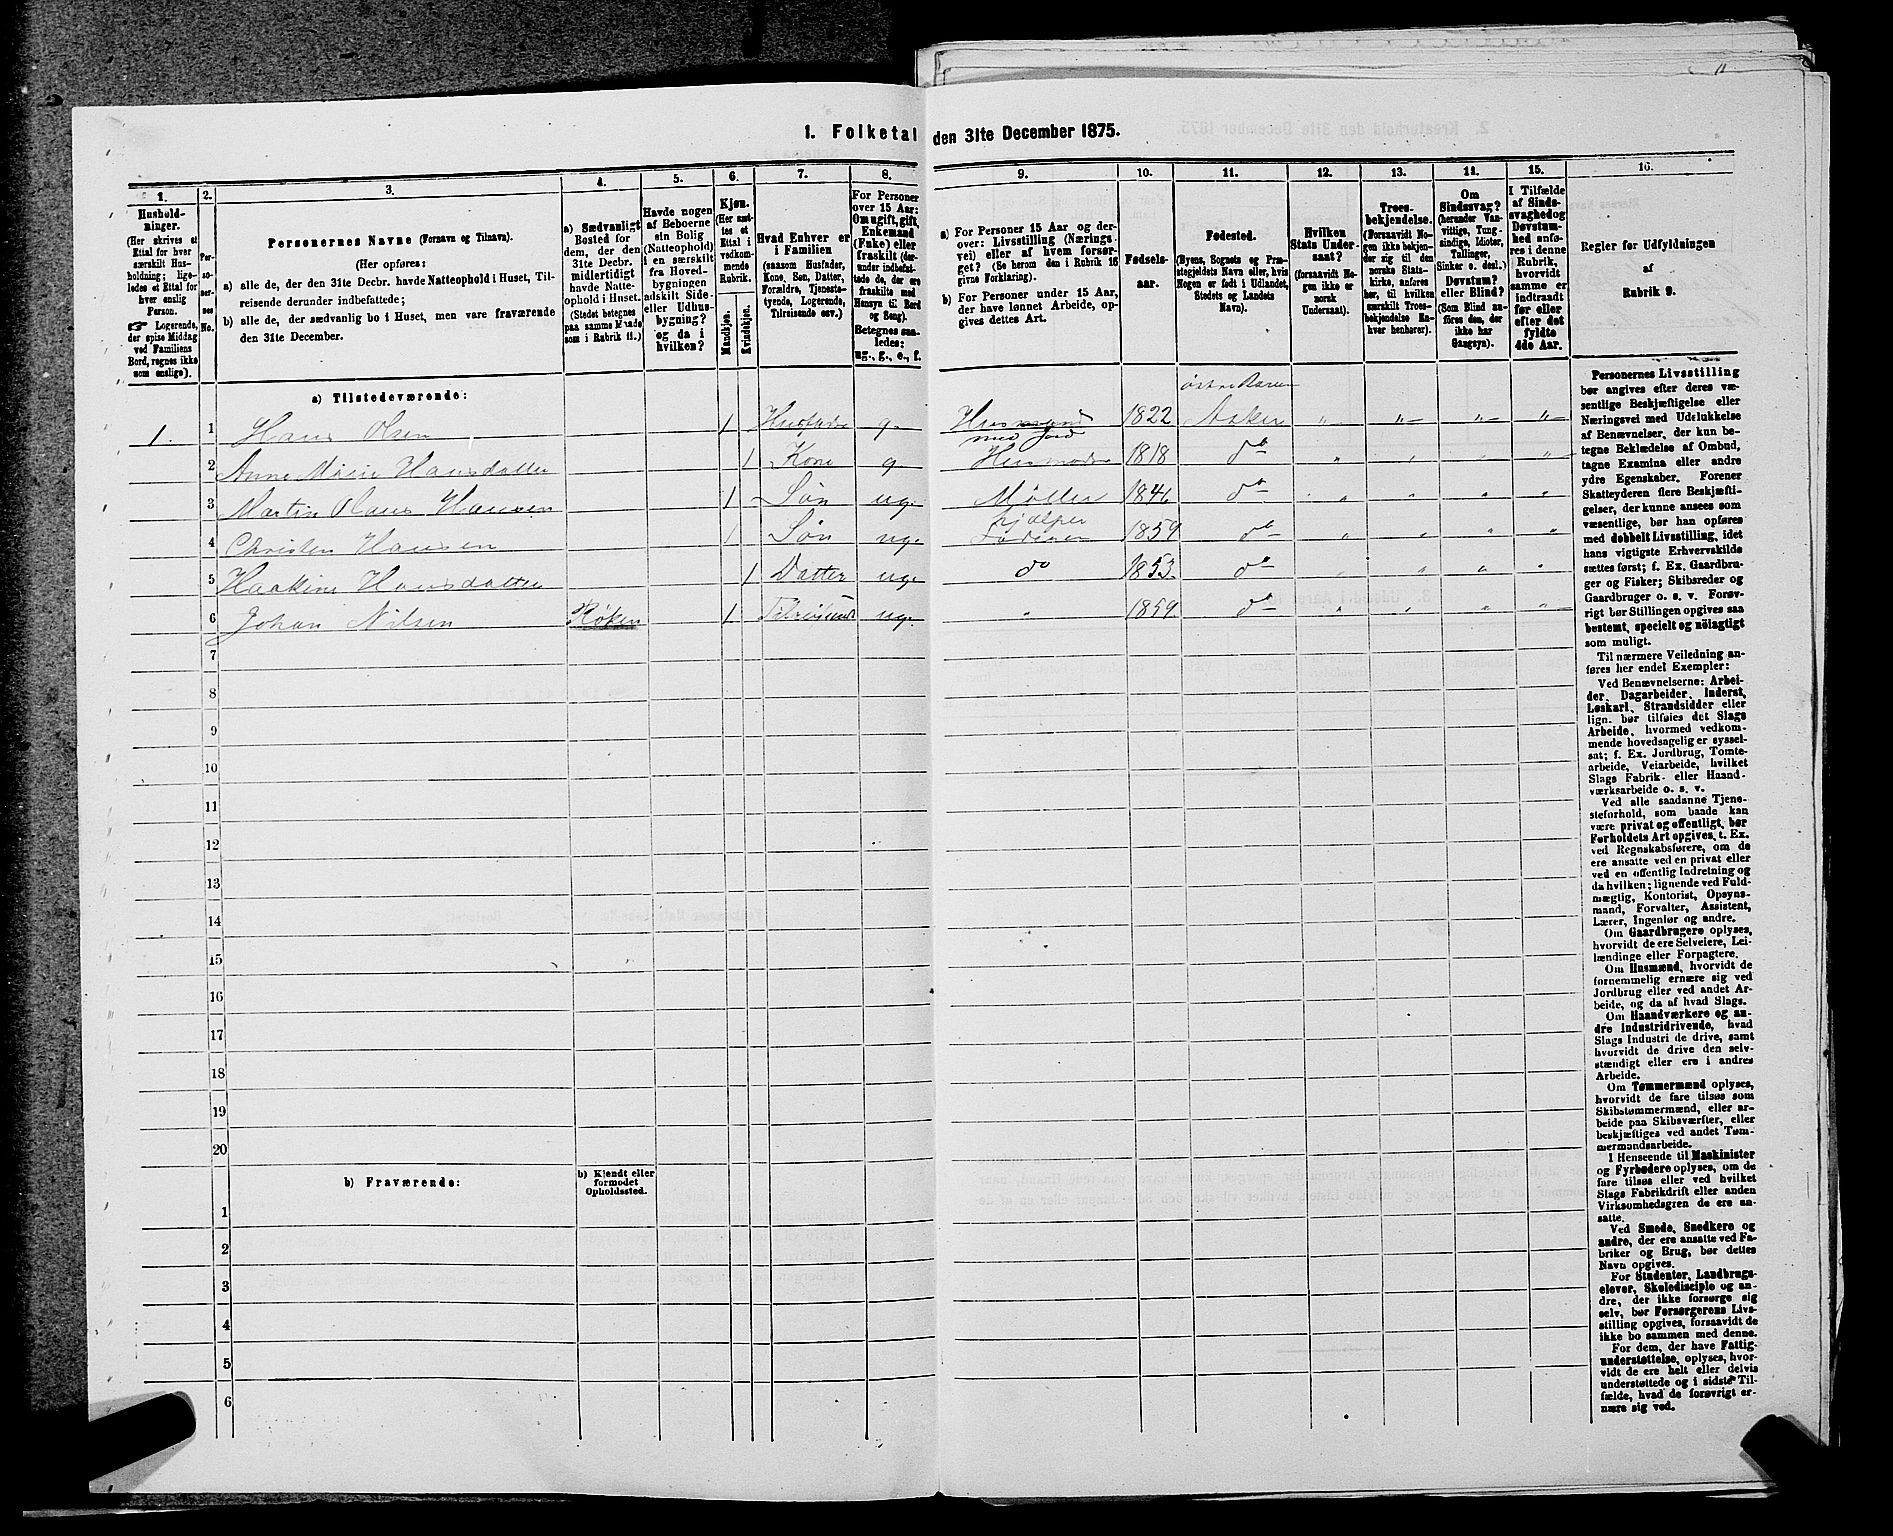 1. Folketal den 31te December 1875.
1.
Hushold-
ninger.
(Her skrives et
Ettal for hver
særskilt Hus-
holdning; lige-
ledes et Ettal for
hver enslig
Person.
☞ Logerende,
der spise Middag
ved Familiens
Bord, regnes ikke
som enslige).
2.
Per-
so-
ner-
nes
No.
3.
Personernes Navne (Fornavn og Tilnavn).
(Her opføres:
a) alle de, der den 31te Decbr. havde Natteophold i Huset, Til-
reisende derunder indbefattede;
b) alle de, der sædvanlig bo i Huset, men vare fraværende
den 31te December.
4.
a) Sædvanligt
Bosted for
dem, der den
31te Decbr.
midlertidigt
havde Natte-
ophold i Huset.
(Stedet betegnes
paa samme Maade
som i Rubrik 11.)
5.
Havde nogen
af Beboerne
sin Bolig
(Natteophold)
i en særskilt
fra Hoved-
bygningen
adskilt Side-
eller Udhus-
bygning?
og da i
hvilken?
6.
Kjøn.
(Her sæt-
tes et
Ettal i
vedkom-
mende
Rubrik.
Mandkjøn.
Kvindekjøn.
7.
Hvad Enhver er
i Familien
(saasom Husfader,
Kone, Søn, Datter,
Forældre, Tjeneste-
tyende, Logerende,
Tilreisende osv.)
8.
For Personer
over 15 Aar:
Om ugift, gift,
Enkemand
(Enke) eller
fraskilt (der-
under indbefat-
tede de, der ere
fraskilte med
Hensyn til Bord
og Seng).
Betegnes saa-
ledes:
ug., g., e., f.
9.
a) For Personer 15 Aar og der-
over: Livsstilling (Nærings-
vei) eller af hvem forsør-
get? (Se herom den i Rubrik 16
givne Forklaring).
b) For Personer under 15 Aar,
der have lønnet Arbeide, op-
gives dettes Art.
10.
Fødsels-
aar.
11.
Fødested.
(Byens, Sognets og Præ-
stegjeldets Navn eller, hvis
Nogen er født i Udlandet,
Stedets og Landets
Navn).
12.
Hvilken
Stats Under-
saat?
(forsaavidt No-
gen ikke er
norsk
Undersaat).
13.
Troes-
bekjendelse.
(Forsaavidt No-
gen ikke bekjen-
der sig til den
norske Stats-
kirke, anføres
her, til hvilken
særskilt Troes-
bekjendelse En-
hver henhører).
14.
Om
Sindssvag?
(herunder Van-
vittige, Tung-
sindige, Idioter,
Tullinger,
Sinker o. desl.)
Døvstum?
eller Blind?
(Som Blind an-
føres den, der
ikke har
Gangsyn).
15.
I Tilfælde
af Sinds-
svaghed og
Døvstum-
hed anfø-
res i denne
Rubrik,
hvorvidt
samme er
indtraadt
før eller
efter det
fyldte
4de Aar.
16.
Regler for Udfyldningen
af
Rubrik 9.
a) Tilstedeværende:
1. 1 Hans Olsen 1 Husfader g. Husmand med Jord 1822 østre Baerum Asker „ „ „ „
2 Anne Marie Hansdatter 1 Kone g Husmoder 1818 do „ „ „ „
3 Martin Olaus Hansen 1 Søn ug. Møller 1846 do „ „ „ „
4 Christen Hansen 1 Søn ug. Hjælper Faderen 1859 do „ „ „ „
5 Haakine Hansdatter 1 Datter ug. do 1853 do „ „ „ „
6 Johan Nilsen Røken 1 Tilreisende ug. „ 1859 do „ „ „ „
7
8
9
10
11
12
13
14
15
16
17
18
19
20
b) Fraværende:
b) Kjendt eller
formodet
Opholdssted.
1
2
3
4
5
6
Personernes Livsstilling
bør angives efter deres væ-
sentlige Beskjæftigelse eller
Næringsvei med Udelukkelse
af Benævnelser, der kun be-
tegne Beklædelse af Ombud,
tagne Examina eller andre
ydre Egenskaber. Forener
Skatteyderen flere Beskjæfti-
gelser, der kunne ansees som
væsentlige, bør han opføres
med dobbelt Livsstilling, idet
hans vigtigste Erhvervskilde
sættes først; f. Ex. Gaardbru-
ger og Fisker; Skibsreder og
Gaardbruger o. s. v. Forøv-
rigt bør Stillingen opgives saa
bestemt, specielt og nøiagtigt
som muligt.
Til nærmere Veiledning an-
føres her endel Exempler:
Ved Benævnelserne: Arbei-
der, Dagarbeider, Inderst,
Løskarl, Strandsidder eller
lign. bør tilføies det Slags
Arbeide, hvormed vedkom-
mende hovedsagelig er syssel-
sat; f. Ex. Jordbrug, Tomte-
arbeide, Veiarbeide, hvilket
Slags Fabrik- eller Haand-
værksarbeide o. s. v.
Ved alle saadanne Tjene-
steforhold, som baade kan
være privat og offentligt, bør
Forholdets Art opgives, t. Ex.
ved Regnskabsførere, om de
ere ansatte ved en privat eller
ved en offentlig Indretning og
da hvilken; lignende ved Fuld-
mægtig, Kontorist, Opsyns-
mand, Forvalter, Assistent,
Lærer, Ingeniør og andre.
Om Gaardbrugere oplyses,
hvorvidt de ere Selveiere, Lei-
lændinge eller Forpagtere.
Om Husmænd, hvorvidt de
fornemmelig ernære sig ved
Jordbrug eller ved andet Ar-
beide, og da af hvad Slags.
Om Haandværkere og an-
dre Industridrivende, hvad
Slags Industri de drive, samt
hvorvidt de drive den selv-
stændigt eller ere i andres
Arbeide.
Om Tømmermænd oplyses,
hvorvidt de fare tilsøs som
Skibstømmermænd, eller ar-
beide paa Skibsværfter, eller
beskjæftiges ved andet Tøm-
mermandsarbeide.
I Henseende til Maskinister
og Fyrbødere oplyses, om de
fare tilsøs eller ved hvilket
Slags Fabrikdrift eller anden
Virksomhedsgren de ere an-
satte.
Ved Smede, Snedkere og
andre, der ere ansatte ved Fa-
briker og Brug, bør dettes
Navn opgives.
For Studenter, Landbrugs-
elever, Skoledisciple og an-
dre, der ikke forsørge sig
selv, bør Forsørgerens Livs-
stilling opgives, forsaavidt de
ikke bo sammen med denne.
For dem, der have Fattig-
understøttelse, oplyses, hvor-
vidt de ere helt eller delvis
understøttede og i sidste Til-
fælde, hvad de forøvrigt er-
nære sig ved.